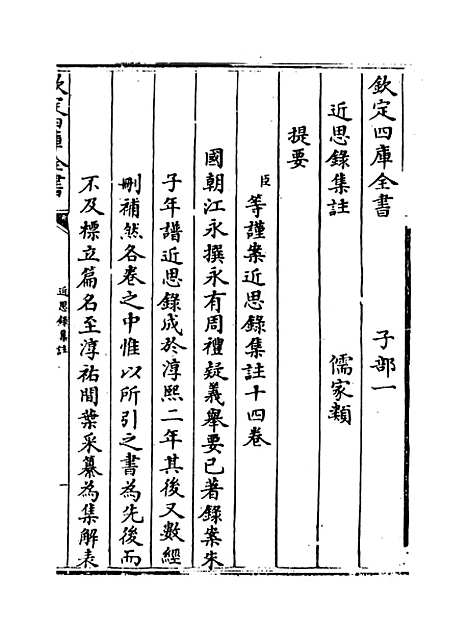 欽定四庫全書　　　子部一
近思錄集註　　　儒家類
提要
臣等謹案近思錄集註十四卷
國朝江永撰永有周禮疑義舉要已著錄案朱
子年譜近思錄成於淳熙二年其後又數經
刪補然各卷之中惟以所引之書為先後而
不及標立篇名至淳祐間葉采纂為集解表
欽定四庫全書
近思錄集註
一